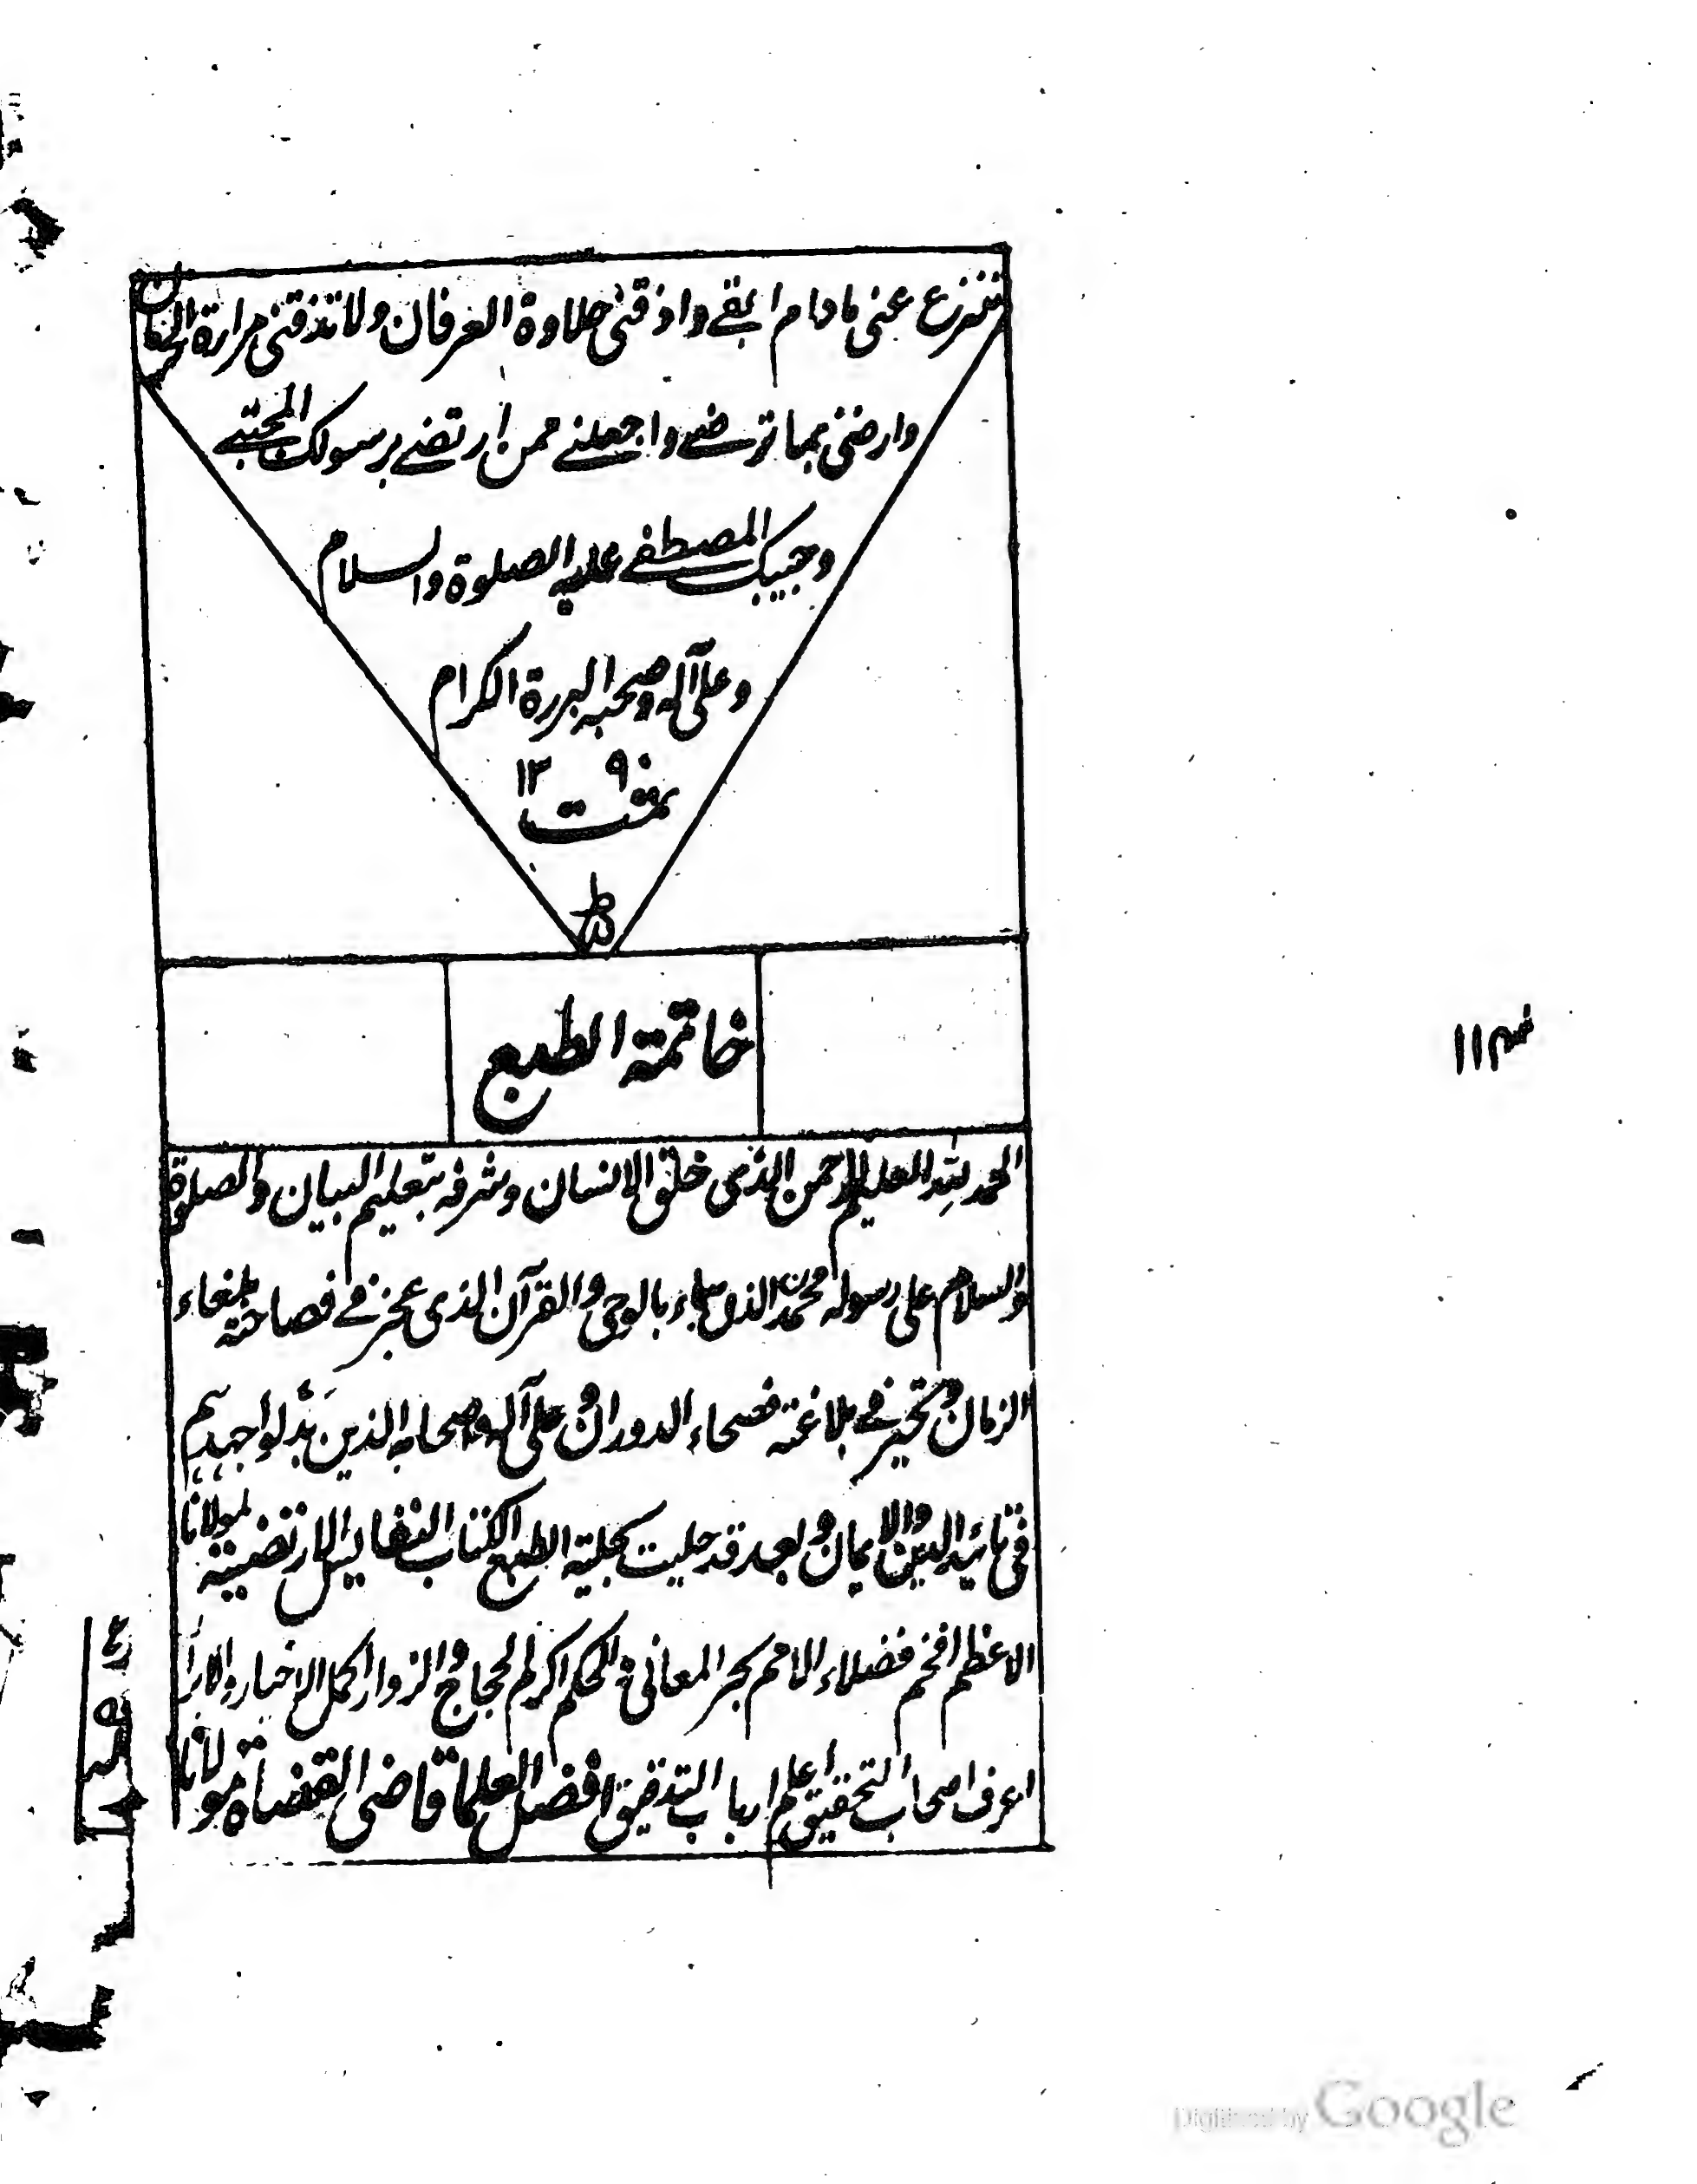 تنزع عنى مادام ابقے واذقنى حلاوة العرفان ولاتذقنى مرارة
وارضنى بما ترضے واجعلنے ممن ارتضے برسولك المجتبے
وحبيبك المصطفے عليه الصلوة والسلام
وعلى آله وصحبه البررة الكرام
١٢٩٠
تمت
خاتمة الطبع
الحمد لله العليم الرحمن الذى خلق الانسان وشرفه بتعليم البيان والصلوة
والسلام على رسوله محمدن الذى جاء بالوحى والقرآن الذى عجز فے فصاحته بلغاء
الزمان وتحير فے بلاغته فصحاء الدوران وعلى آله واصحابه الذين بذلوا جهدهم
فى تائيد الدين والايمان وبعد قد حليت بحلية الطبع الكتاب النفايس الارتضية لمولانا
الاعظم افخم فضلاء الامم بحر المعانى والحكم اكرم الحجاج والزوار اكمل الاخيار والابرار
اعرف اصحاب التحقيق اعلم ارباب التدقيق افضل العلما قاضى القضاة مولانا
Digitized by Google